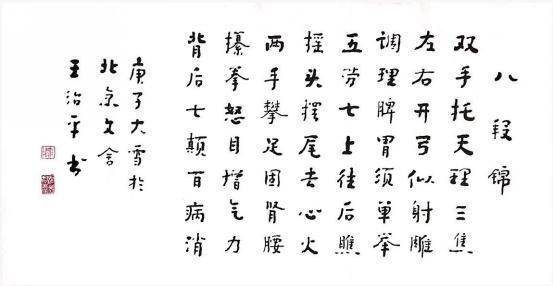 八段锦
双手托天理三焦
左右开弓似射雕
调理脾胃须单举
五劳七上往后瞧
摇头摆尾去心火
两手攀足固肾腰
攥拳怒目增气力
背后七颠百病消
庚子大雪於
北京文舍
王治平书